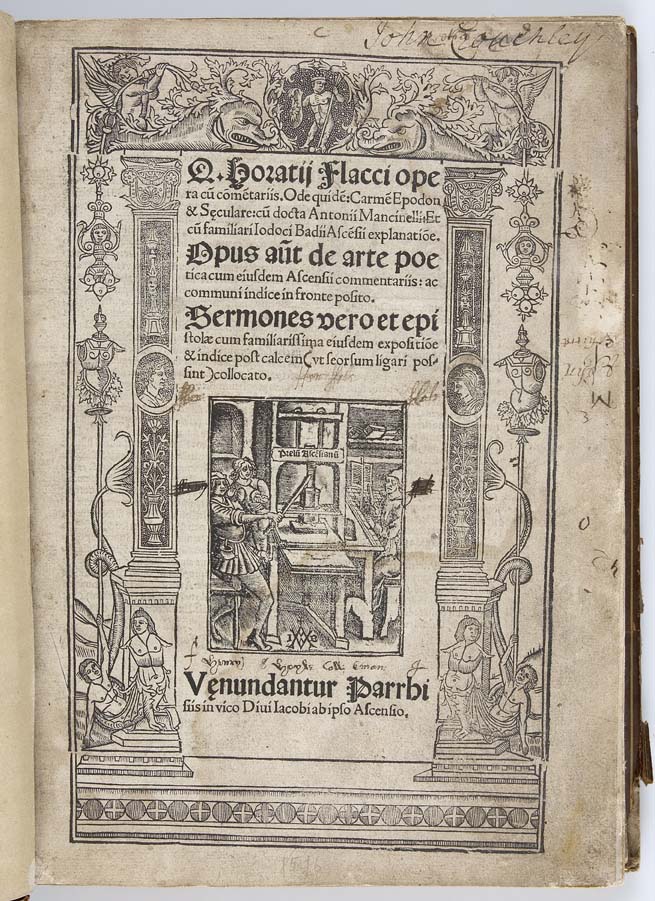 John Couchley
Q. Horatij Flacci ope
ra cū comētariis. Ode quidē: Carmē Epodon
& Sęculare: cū docta Antonii Mancinelli: Et
cū familiari Iodoci Badii Ascēsii explanatiōe.
Opus aūt de arte poe
tica cum eiusdem Ascensii commentariis: ac
communi indice in fronte posito.
Sermones vero et epi
stolæ cum familiarissima eiusdem expositiōe
& indice post calcem (vt seorsum ligari pos-
sint) collocato.
Prelū Ascēsianū
Vęnundantur Parrhi
siis in vico Diui Iacobi ab ipso Ascensio.